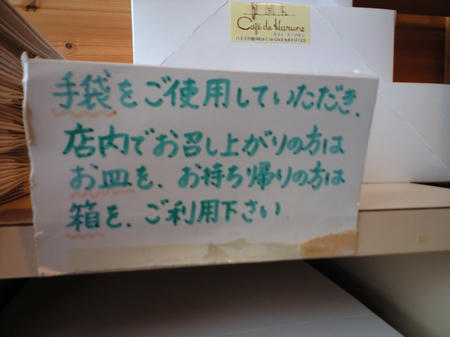 Café de Manune
手袋をご使用していただき、
店内でお召し上がりの方は
お皿を、お持ち帰りの方は
箱を、ご利用下さい